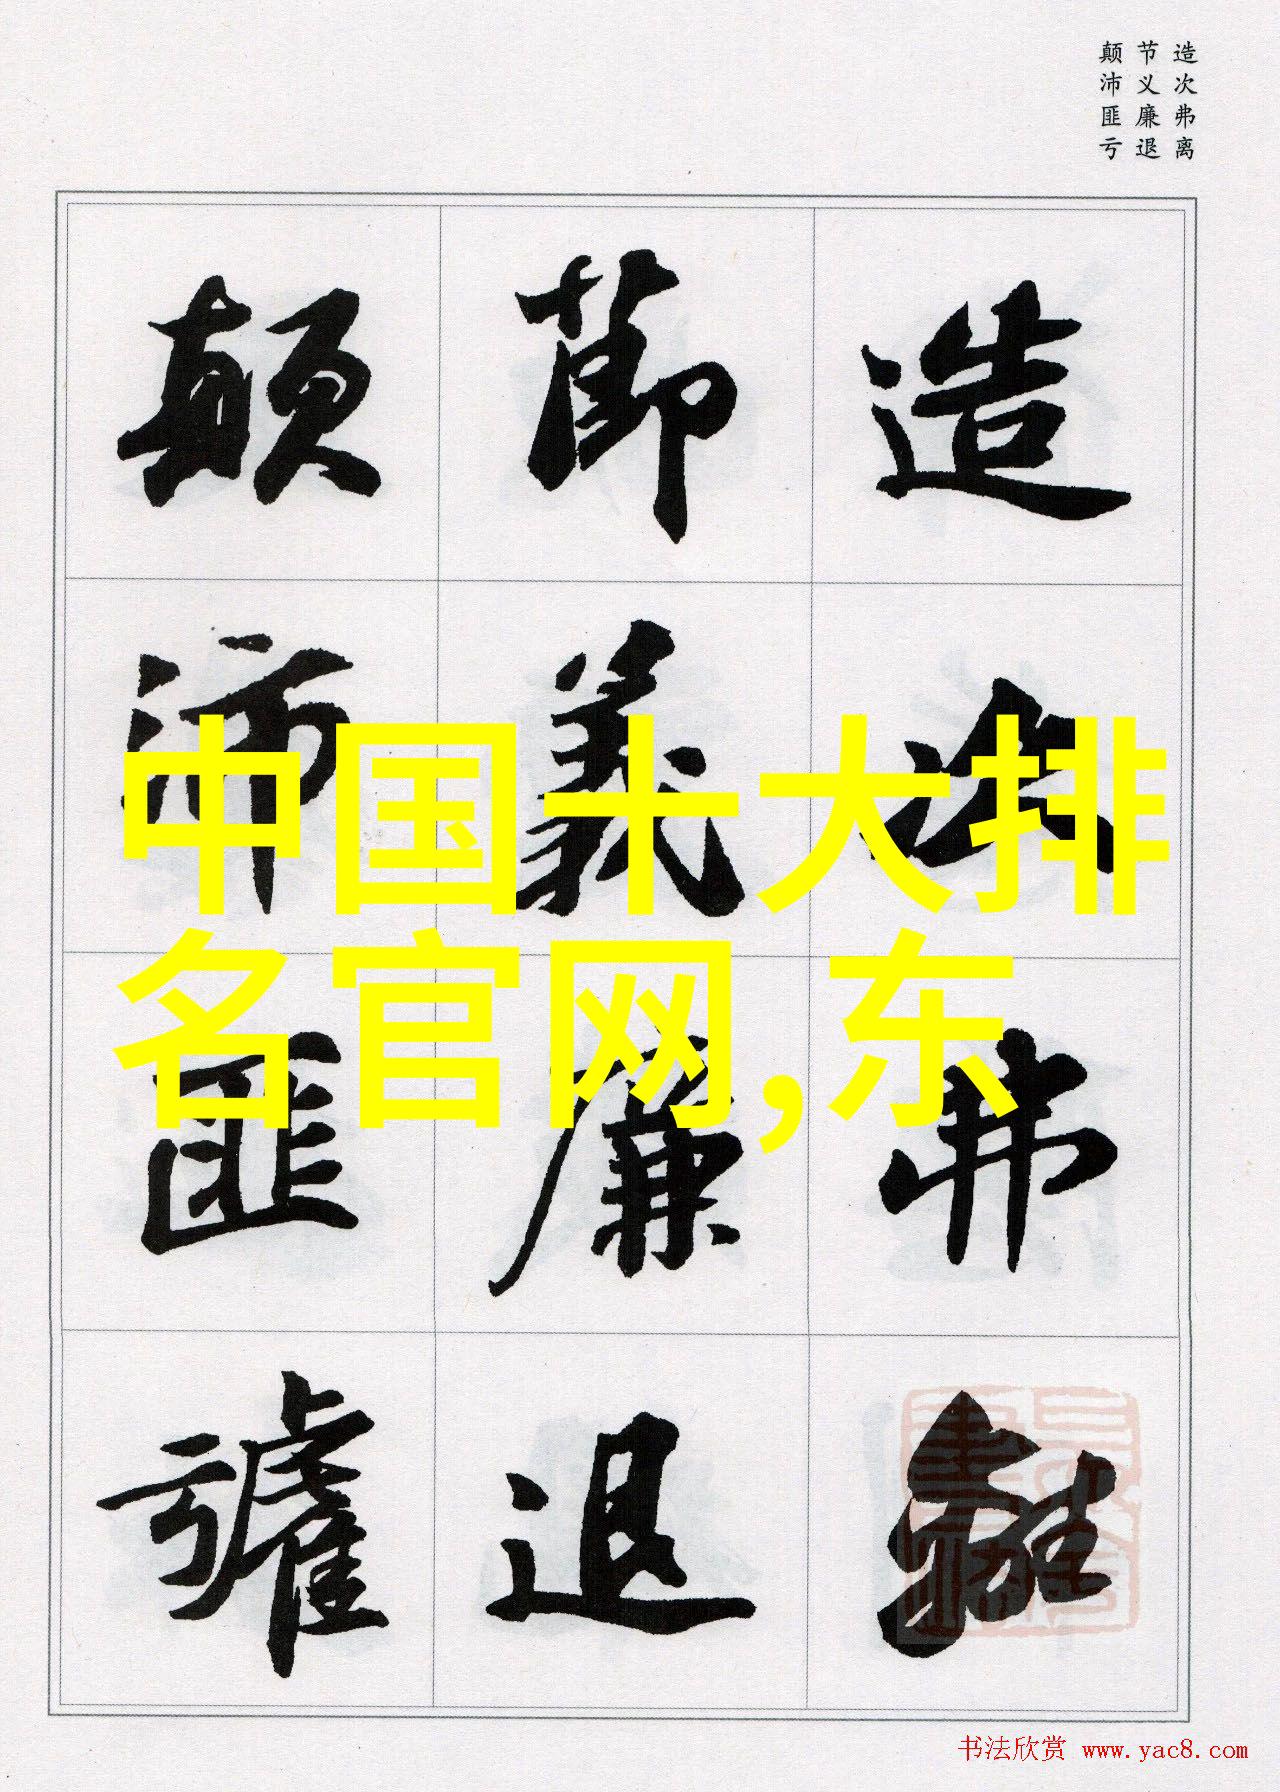 造次弗离
节义廉退
颠沛匪亏
造次弗離
節義廉退
顛沛匪虧
中国十大排
名官网,东
书法欣赏 www.yac8.com